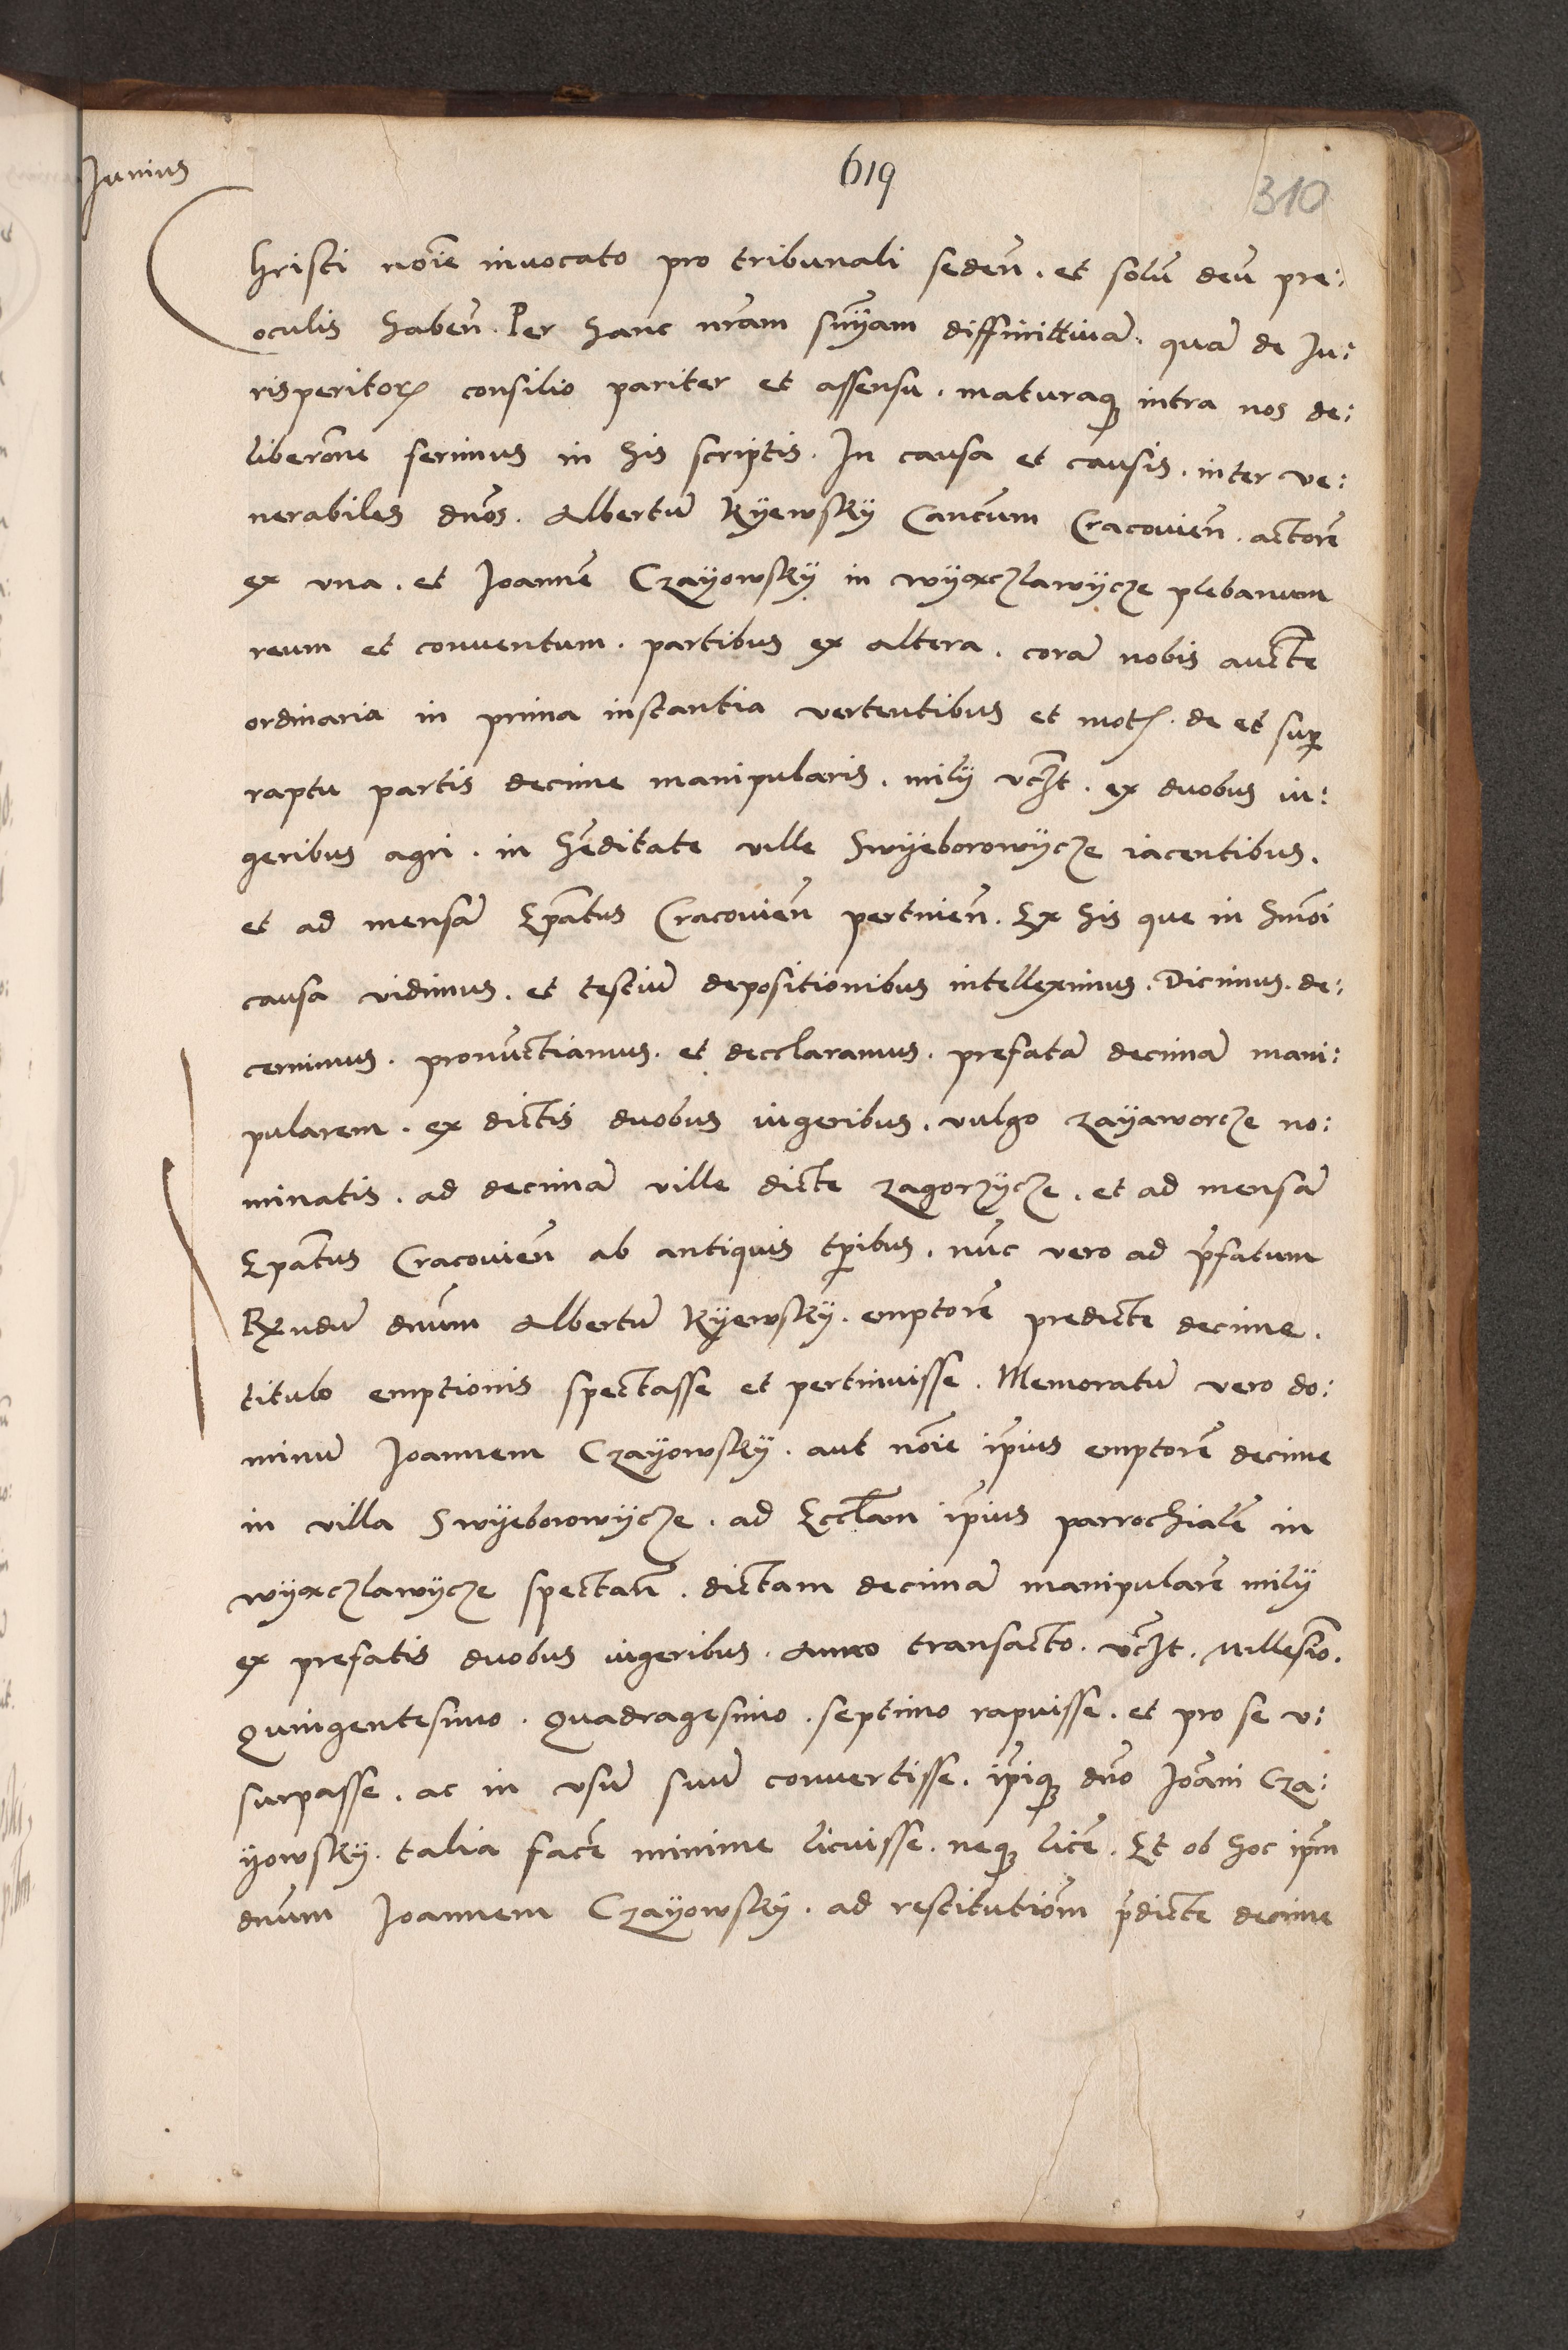 Junius
619
310
Christi noīe invocato pro tribunali sedeñ. et solū deū pre:
oculis habeñ. Per hanc nr̃am sniam diffinittivā. quā de Ju:
risperitoꝝ consilio pariter et assensu. maturaqꝫ intra nos de:
liberōne ferimus in his scriptis. In causa et causis. inter ve:
nerabiles dños. Albertū Kyewsky Cancūm Cracovieñ. actorē
ex vna. et Joannē Czayowsky in wyaczlawycze plebanum
reum et conventum. partibus ex altera. corā nobis aucte
ordinaria in prima instantia vertentibus et motꝭ. de et suꝑ
raptu partis decime manipularis. mily vcꝫt. ex duobus iu:
geribus agri. in hēditate ville Swyeborowycze iacentibus.
et ad mensā Ep̄atus Cracovieñ pertinen̄. Ex his que in hmōi
causa vidimus. et testiū depositionibus intelleximus. Dicimus. de:
cernimus. pronūctiamus. et decclaramus. prefatā decimā mani:
pularem. ex dictis duobus iugeribus. vulgo zayaworcze no:
minatis. ad decimā ville dicte zagorzycze. et ad mensā
Ep̄atus Cracovieñ ab antiquis tꝑibus. nūc vero ad p̄fatum
Rx̄ndū dnūm Albertū Kyewsky. emptorē predicte decime.
titulo emptionis spectasse et pertinuisse. Memoratū vero do:
minū Joannem Czayowsky. aut nōie ip̄ius emptorē decime
in villa Swyeborowycze. ad Ecclām ip̄ius parrochialē in
wyaczlawycze spectañ. dictam decimā manipularē mily
ex prefatis duobus iugeribus. Anno transacto. vcꝫt. Millesīo.
Quingentesimo. Quadragesimo. septimo rapuisse. et pro se v:
surpasse. ac in vsū suū convertisse. ip̄iqꝫ dn̄o Joāni Cza:
yowsky. talia facē minime licuisse. neqꝫ licē. Et ob hoc ip̄m
dnūm Joannem Czayowsky. ad restitutiōm p̄dicte decime